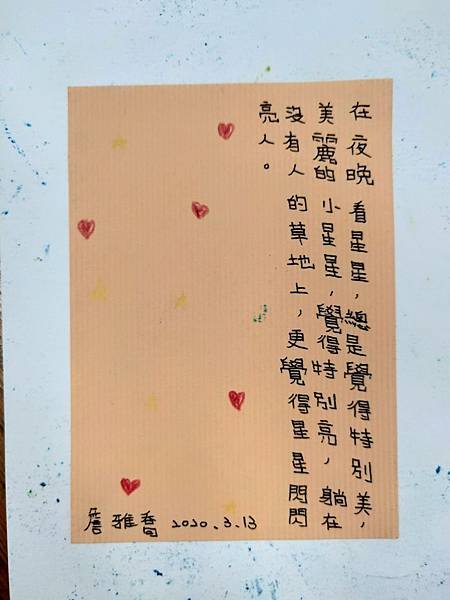 在夜晚看星星，總是覺得特別美，
美麗的小星星，覺得特別亮，躺在
沒有人的草地上，更覺得星星閃閃
亮人。
詹雅喬 2020.3.13